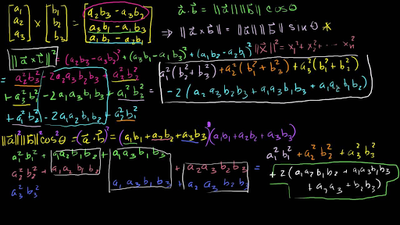 [a₁ a₂ a₃] × [b₁ b₂ b₃] = [a₂b₃ - a₃b₂ a₃b₁ - a₁b₃ a₁b₂ - a₂b₁]
a⃗·b⃗ = ||a⃗|| ||b⃗|| cosθ
⇒ ||a⃗ × b⃗|| = ||a⃗|| ||b⃗|| sinθ *
||a⃗ × b⃗||² = (a₂b₃ - a₃b₂)² + (a₃b₁ - a₁b₃)² + (a₁b₂ - a₂b₁)²
||x⃗||² = x₁² + x₂² + ... xₙ²
= a₂²b₃² - 2a₂a₃b₂b₃ + a₃²b₂²
+ a₃²b₁² - 2a₁a₃b₁b₃ + a₁²b₃² =
+ a₁²b₂² - 2a₁a₂b₁b₂ + a₂²b₁²
a₁²(b₂² + b₃²) + a₂²(b₁² + b₃²) + a₃²(b₁² + b₂²)
- 2(a₂a₃b₂b₃ + a₁a₃b₁b₃ + a₁a₂b₁b₂)
||a⃗||²||b⃗||²cos²θ = (a⃗·b⃗)² = (a₁b₁ + a₂b₂ + a₃b₃)(a₁b₁ + a₂b₂ + a₃b₃)
a₁²b₁² + a₁a₂b₁b₂ + a₁a₃b₁b₃
a₂²b₂² + a₁a₂b₁b₂ + a₂a₃b₂b₃
a₃²b₃² + a₁a₃b₁b₃ + a₂a₃b₂b₃
= a₁²b₁² + a₂²b₂² + a₃²b₃²
+ 2(a₁a₂b₁b₂ + a₁a₃b₁b₃
+ a₂a₃ + b₂b₃)